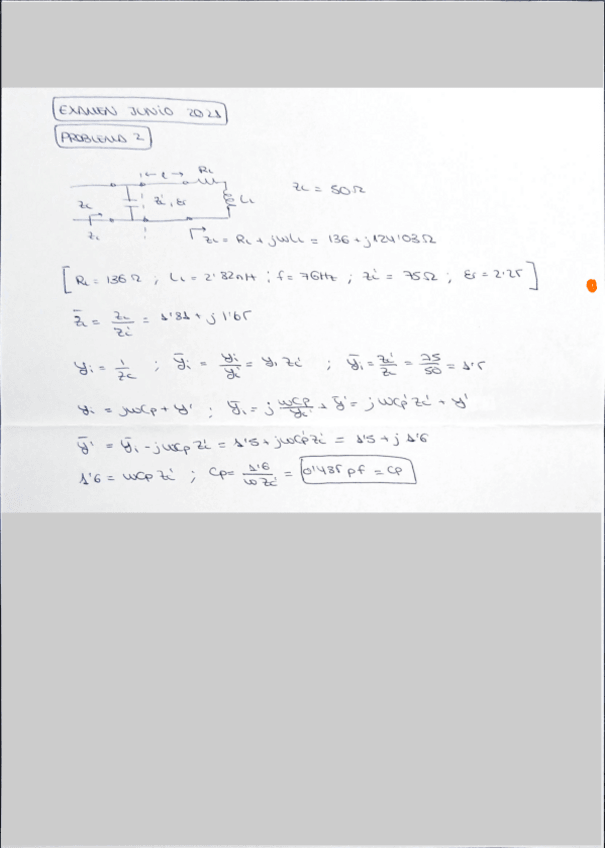 EXAMEN JUNIO 2021
PROBLEMA 2
l RL
Zc Zc', εr LL Zc = 50Ω
Zi ZL = RL + jωLL = 136 + j124'03Ω
[RL = 136Ω ; LL = 2'82nH ; f = 7GHz ; Zc' = 75Ω ; εr = 2.25]
Z̄L = ZL/Zc' = 1'81 + j 1'65
yi = 1/Zc ; ȳi = yi/yc' = yi Zc' ; ȳi = Zc'/Zc = 75/50 = 1'5
yi = jωCp + y' ; ȳi = j ωCp/yc' + ȳ' = jωCp Zc' + y'
ȳ' = ȳi - jωCp Zc' = 1'5 + jωCp Zc' = 1'5 + j 1'6
1'6 = ωCp Zc' ; Cp = 1'6/ωZc' = 0'485 pF = Cp